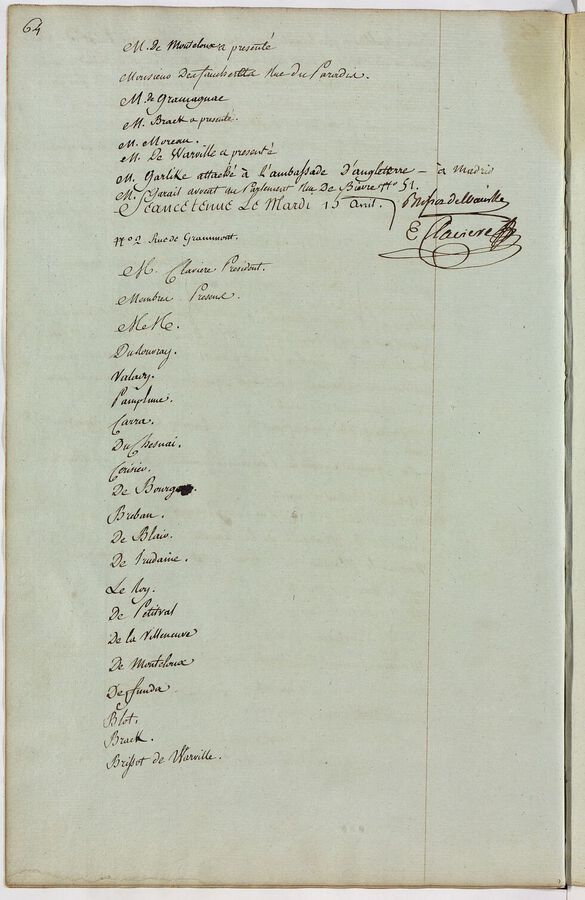 64
M. de Monteloux a presenté
Monsieur Desfaucherets Rue du Paradis.
M. de Gramagnac
M. Brack a presenté.
M. Moreau.
M. De Warville a presenté
M. Garlike attaché à l'ambassade d'angleterre – à Madrid
M. Garail avocat au Parlement Rue De Bievre N.º 51.
Séance tenue Le Mardi 15 Avril.
Brissot de Warville
E Claviere
Nº 2 Rue de Grammont.
M. Claviere President.
Membres Presens.
M. M.
Du Rouvray.
Valady.
Pampelune.
Carra.
Du Chesnai.
Cerisier.
De Bourges.
Breban.
De Blaire.
De Trudaine.
Le Roy.
De Petitval
De la Villeneuve
De Monteloux
De
Blot.
Brack.
Brissot de Warville.